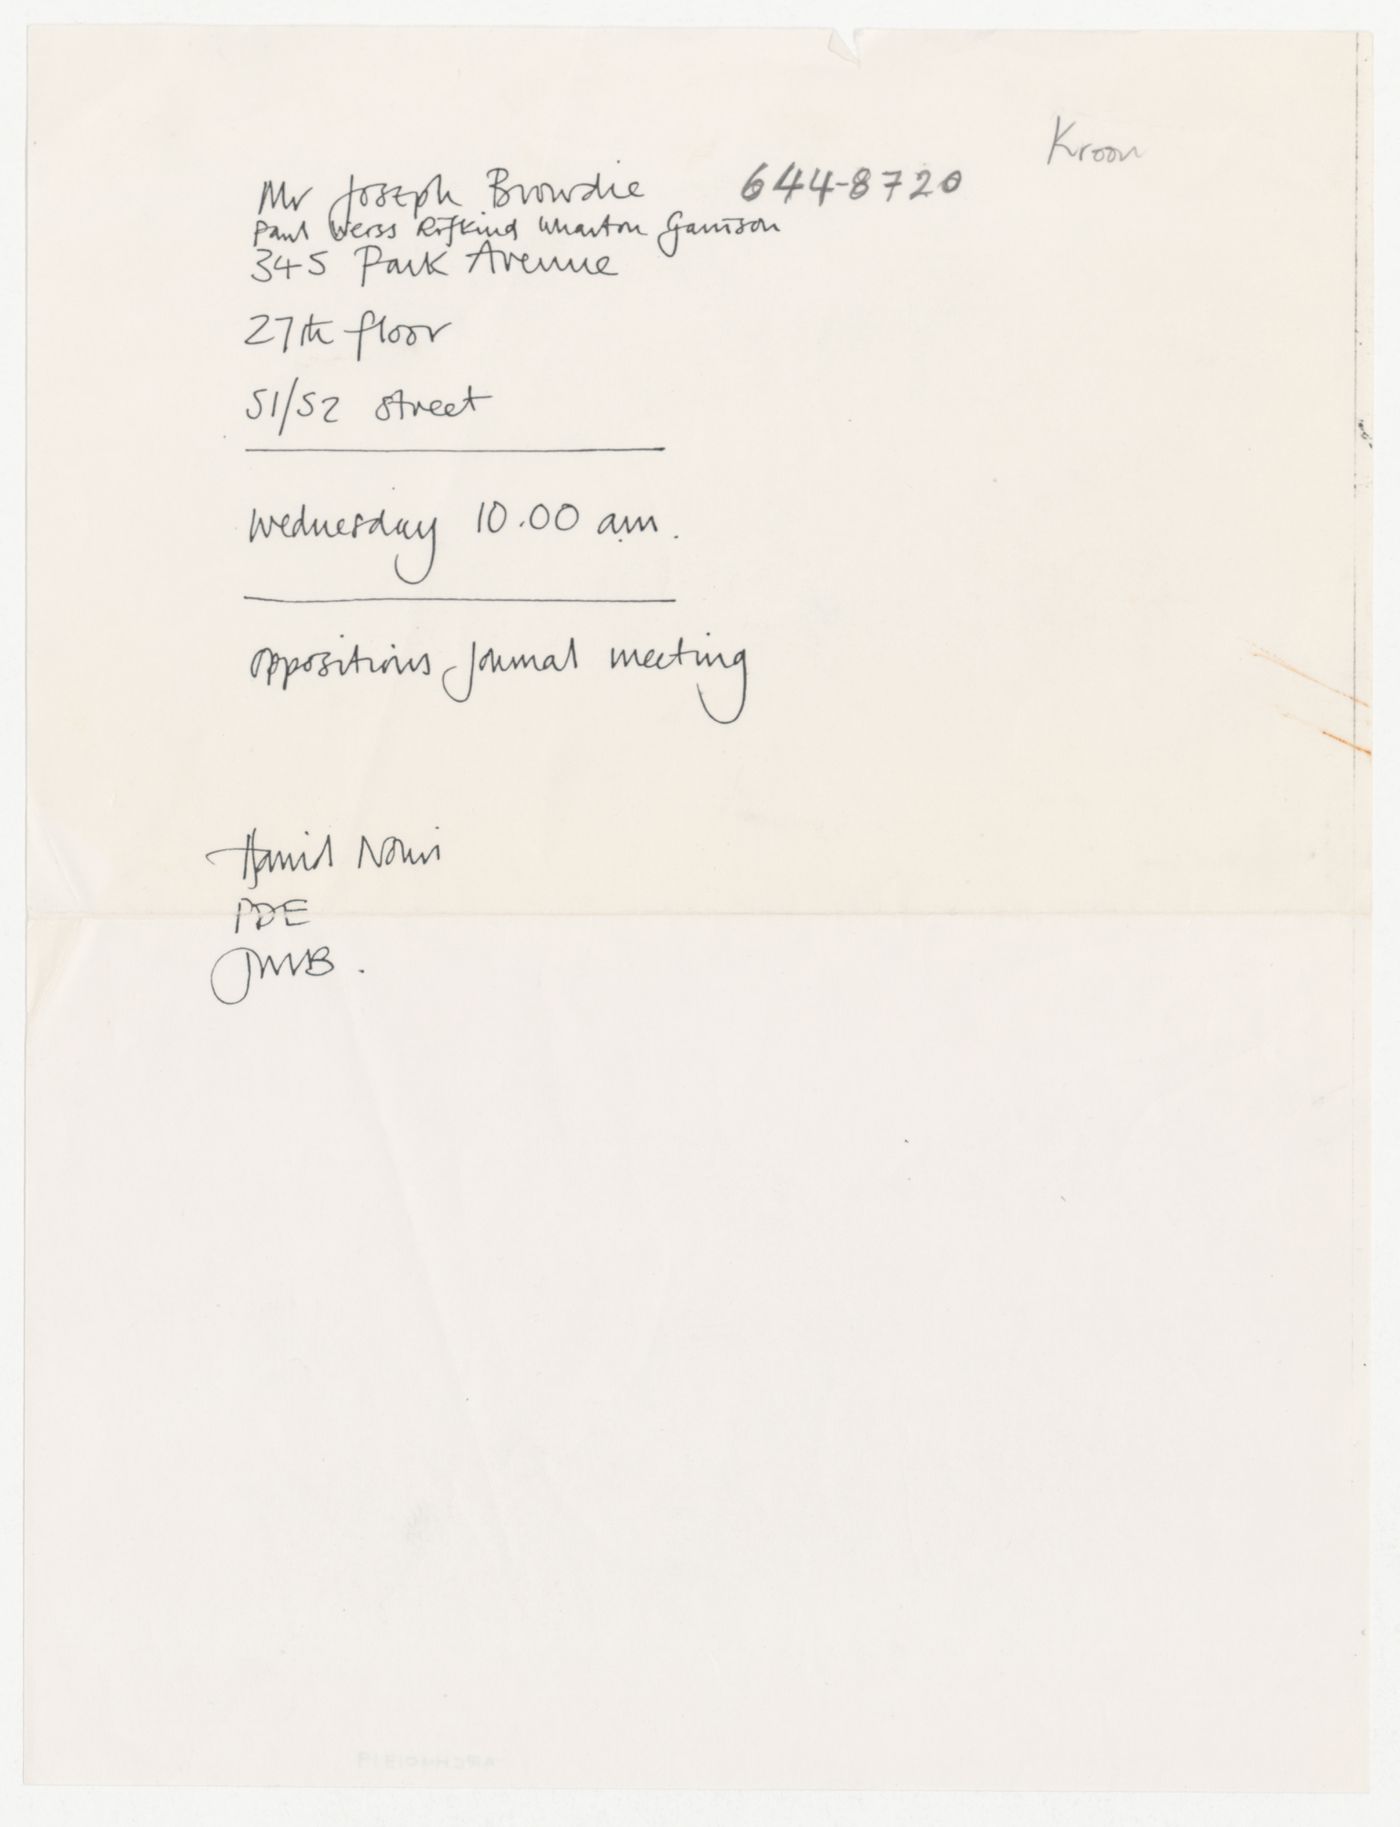 Kroon
Mr Joseph Browdie 644-8720
Paul Weiss Rifkind Wharton Garrison
345 Park Avenue
27th floor
51/52 street
Wednesday 10.00 am.
oppositions Journal meeting
Hamid Nouri
PDE